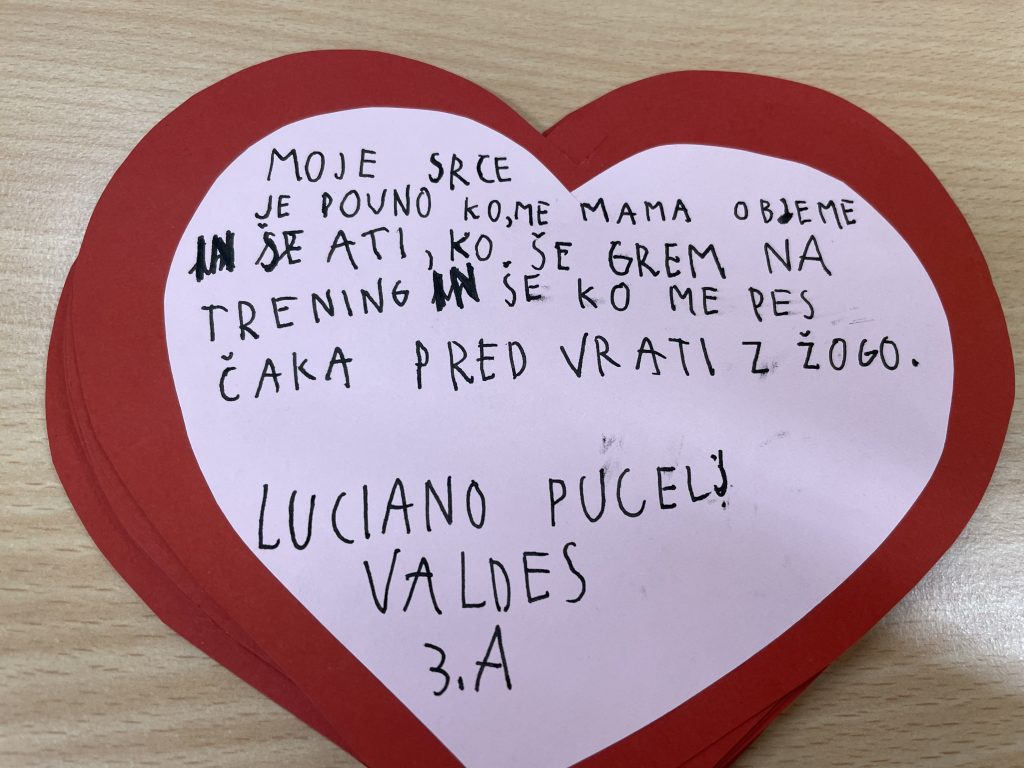 MOJE SRCE
JE POUNO KO,ME MAMA OBJEME
IN ŠE ATI, KO ŠE GREM NA
TRENING IN ŠE KO ME PES
ČAKA PRED VRATI Z ŽOGO.
LUCIANO PUCELJ
VALDES
3.A